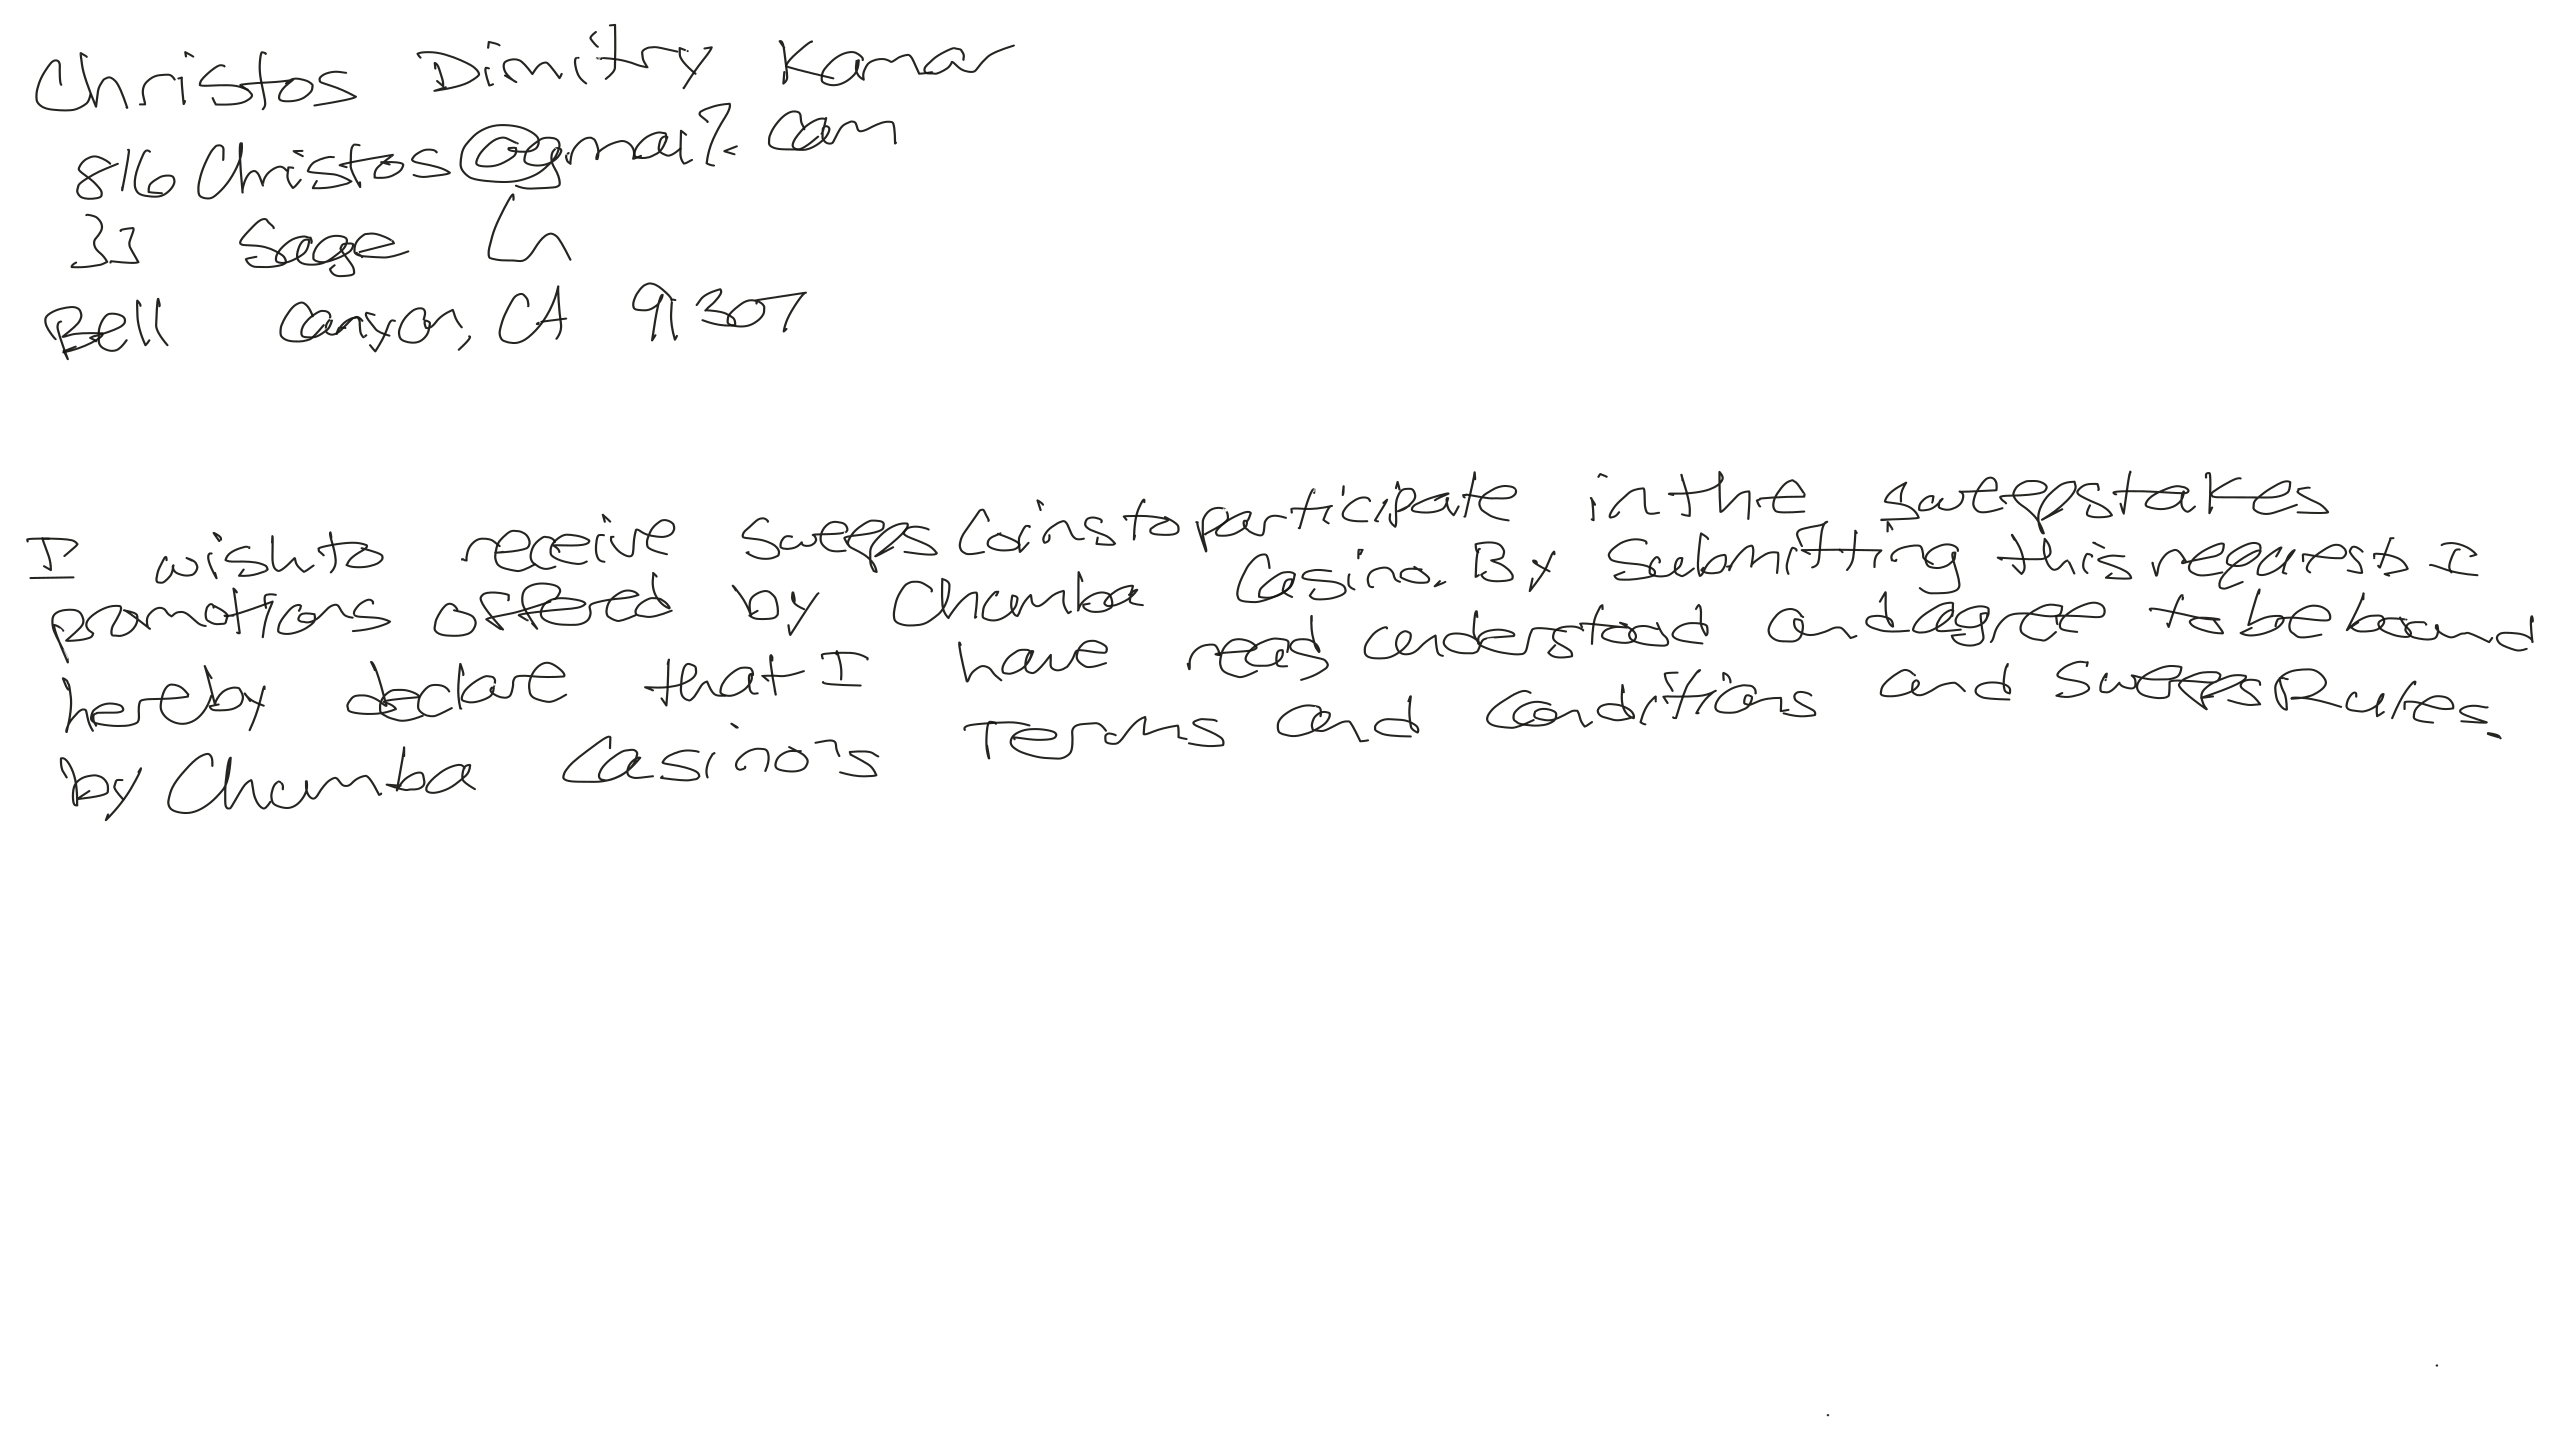 Christos Dimitry Kanar
816Christos@gmail.com
33 Sage Ln
Bell Canyon, CA 91307
I wish to receive Sweeps Coins to participate in the sweepstakes
promotions offered by Chumba Casino. By Submitting this request I
hereby declare that I have read understood and agree to be bound
by Chumba Casino's Terms and Conditions and Sweeps Rules.